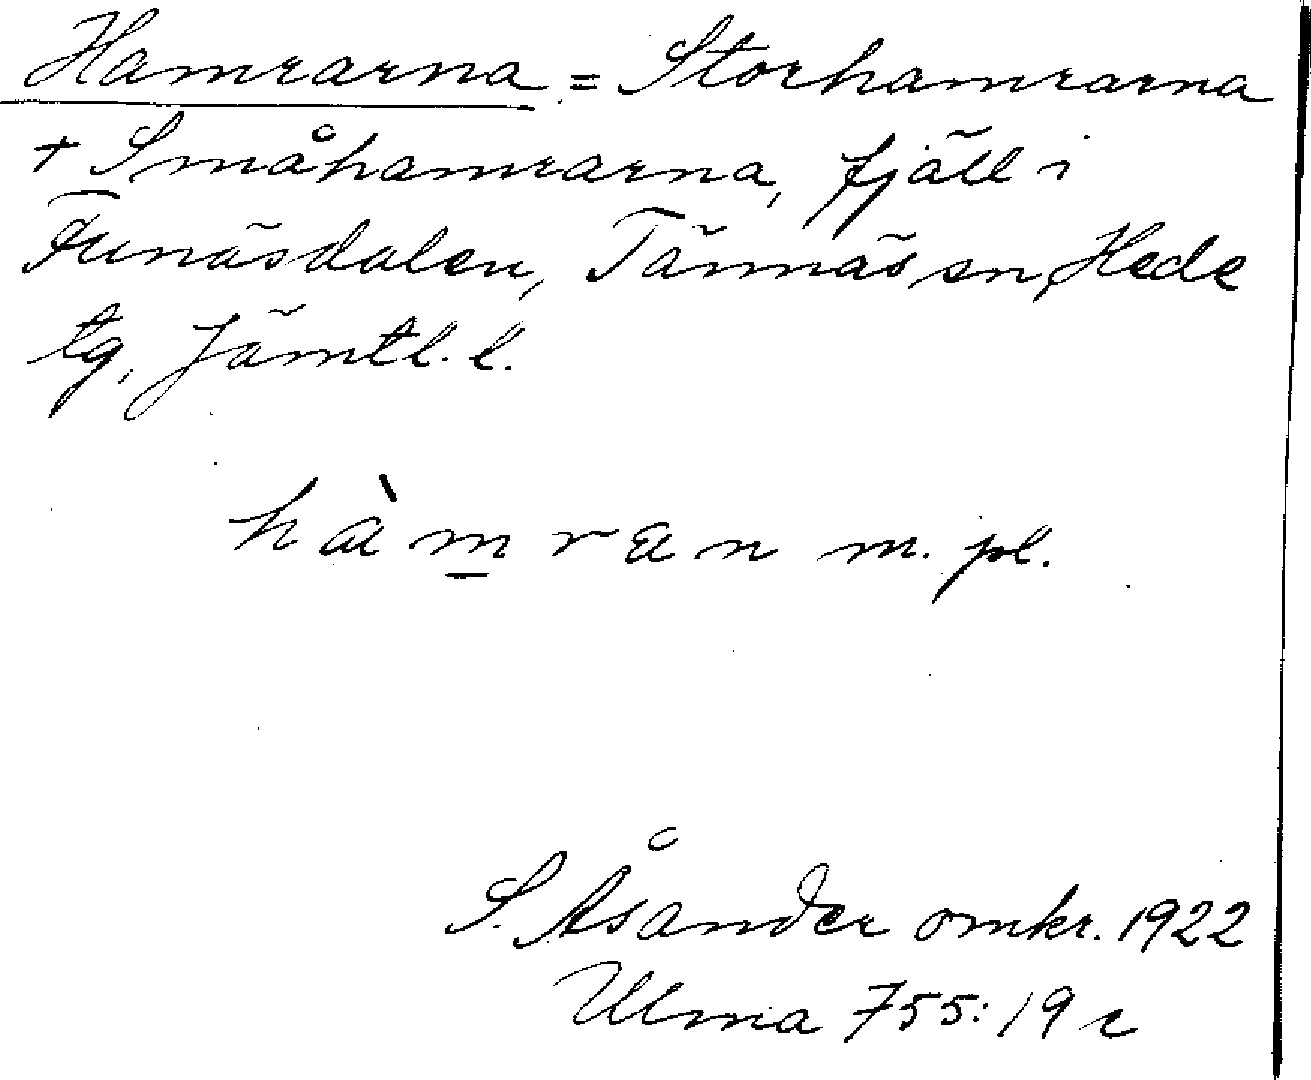 Hamrarna = Storhamrarna
+ Småhamrarna, fjäll i
Funäsdalen, Tännäs sn, Hede
tg, Jämtl. l.
hàmran m. pl.
S. Åsander omkr. 1922
Ulma 755: 19 c